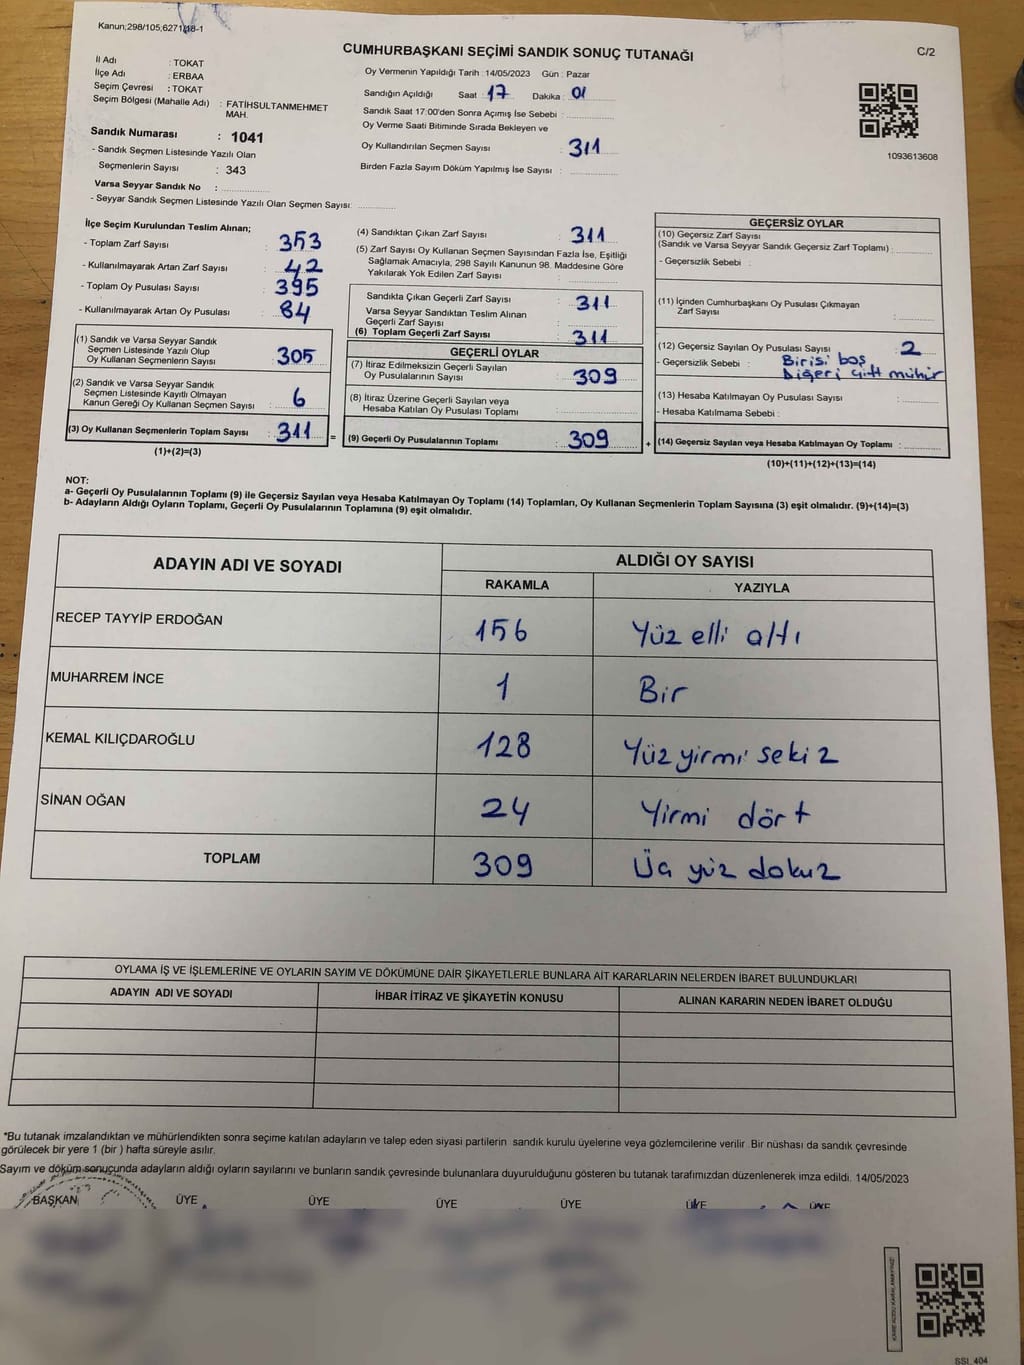 Kanun;298/105;6271/18-1
CUMHURBAŞKANI SEÇİMİ SANDIK SONUÇ TUTANAĞI
C/2
İl Adı : TOKAT
İlçe Adı : ERBAA
Seçim Çevresi : TOKAT
Seçim Bölgesi (Mahalle Adı) : FATİHSULTANMEHMET
MAH.
Sandık Numarası : 1041
- Sandık Seçmen Listesinde Yazılı Olan
Seçmenlerin Sayısı : 343
Varsa Seyyar Sandık No :
- Seyyar Sandık Seçmen Listesinde Yazılı Olan Seçmen Sayısı:
Oy Vermenin Yapıldığı Tarih :14/05/2023 Gün : Pazar
Sandığın Açıldığı Saat : 17 Dakika : 01
Sandık Saat 17:00'den Sonra Açımış İse Sebebi :
Oy Verme Saati Bitiminde Sırada Bekleyen ve
Oy Kullandırılan Seçmen Sayısı : 311
Birden Fazla Sayım Döküm Yapılmış İse Sayısı :
1093613608
İlçe Seçim Kurulundan Teslim Alınan;
- Toplam Zarf Sayısı : 353
- Kullanılmayarak Artan Zarf Sayısı : 42
- Toplam Oy Pusulası Sayısı : 395
- Kullanılmayarak Artan Oy Pusulası : 84
(1) Sandık ve Varsa Seyyar Sandık
Seçmen Listesinde Yazılı Olup
Oy Kullanan Seçmenlerin Sayısı : 305
(2) Sandık ve Varsa Seyyar Sandık
Seçmen Listesinde Kayıtlı Olmayan
Kanun Gereği Oy Kullanan Seçmen Sayısı : 6
(3) Oy Kullanan Seçmenlerin Toplam Sayısı : 311 =
(1)+(2)=(3)
(4) Sandıktan Çıkan Zarf Sayısı : 311
(5) Zarf Sayısı Oy Kullanan Seçmen Sayısından Fazla İse, Eşitliği
Sağlamak Amacıyla, 298 Sayılı Kanunun 98. Maddesine Göre
Yakılarak Yok Edilen Zarf Sayısı :
Sandıkta Çıkan Geçerli Zarf Sayısı : 311
Varsa Seyyar Sandıktan Teslim Alınan
Geçerli Zarf Sayısı :
(6) Toplam Geçerli Zarf Sayısı : 311
GEÇERLİ OYLAR
(7) İtiraz Edilmeksizin Geçerli Sayılan
Oy Pusulalarının Sayısı : 309
(8) İtiraz Üzerine Geçerli Sayılan veya
Hesaba Katılan Oy Pusulası Toplamı :
(9) Geçerli Oy Pusulalarının Toplamı : 309 +
GEÇERSİZ OYLAR
(10) Geçersiz Zarf Sayısı
(Sandık ve Varsa Seyyar Sandık Geçersiz Zarf Toplamı) :
- Geçersizlik Sebebi :
(11) İçinden Cumhurbaşkanı Oy Pusulası Çıkmayan
Zarf Sayısı :
(12) Geçersiz Sayılan Oy Pusulası Sayısı : 2
- Geçersizlik Sebebi : Birisi boş
Diğeri çift mühür
(13) Hesaba Katılmayan Oy Pusulası Sayısı :
- Hesaba Katılmama Sebebi :
(14) Geçersiz Sayılan veya Hesaba Katılmayan Oy Toplamı :
(10)+(11)+(12)+(13)=(14)
NOT:
a- Geçerli Oy Pusulalarının Toplamı (9) ile Geçersiz Sayılan veya Hesaba Katılmayan Oy Toplamı (14) Toplamları, Oy Kullanan Seçmenlerin Toplam Sayısına (3) eşit olmalıdır. (9)+(14)=(3)
b- Adayların Aldığı Oyların Toplamı, Geçerli Oy Pusulalarının Toplamına (9) eşit olmalıdır.
ADAYIN ADI VE SOYADI ALDIĞI OY SAYISI
RAKAMLA YAZIYLA
RECEP TAYYİP ERDOĞAN 156 Yüz elli altı
MUHARREM İNCE 1 Bir
KEMAL KILIÇDAROĞLU 128 Yüz yirmi sekiz
SİNAN OĞAN 24 Yirmi dört
TOPLAM 309 Üç yüz dokuz
OYLAMA İŞ VE İŞLEMLERİNE VE OYLARIN SAYIM VE DÖKÜMÜNE DAİR ŞİKAYETLERLE BUNLARA AİT KARARLARIN NELERDEN İBARET BULUNDUKLARI
ADAYIN ADI VE SOYADI İHBAR İTİRAZ VE ŞİKAYETİN KONUSU ALINAN KARARIN NEDEN İBARET OLDUĞU
*Bu tutanak imzalandıktan ve mühürlendikten sonra seçime katılan adayların ve talep eden siyasi partilerin sandık kurulu üyelerine veya gözlemcilerine verilir. Bir nüshası da sandık çevresinde
görülecek bir yere 1 (bir ) hafta süreyle asılır.
Sayım ve döküm sonucunda adayların aldığı oyların sayılarını ve bunların sandık çevresinde bulunanlara duyurulduğunu gösteren bu tutanak tarafımızdan düzenlenerek imza edildi. 14/05/2023
BAŞKAN ÜYE ÜYE ÜYE ÜYE ÜYE ÜYE
SSI. 404